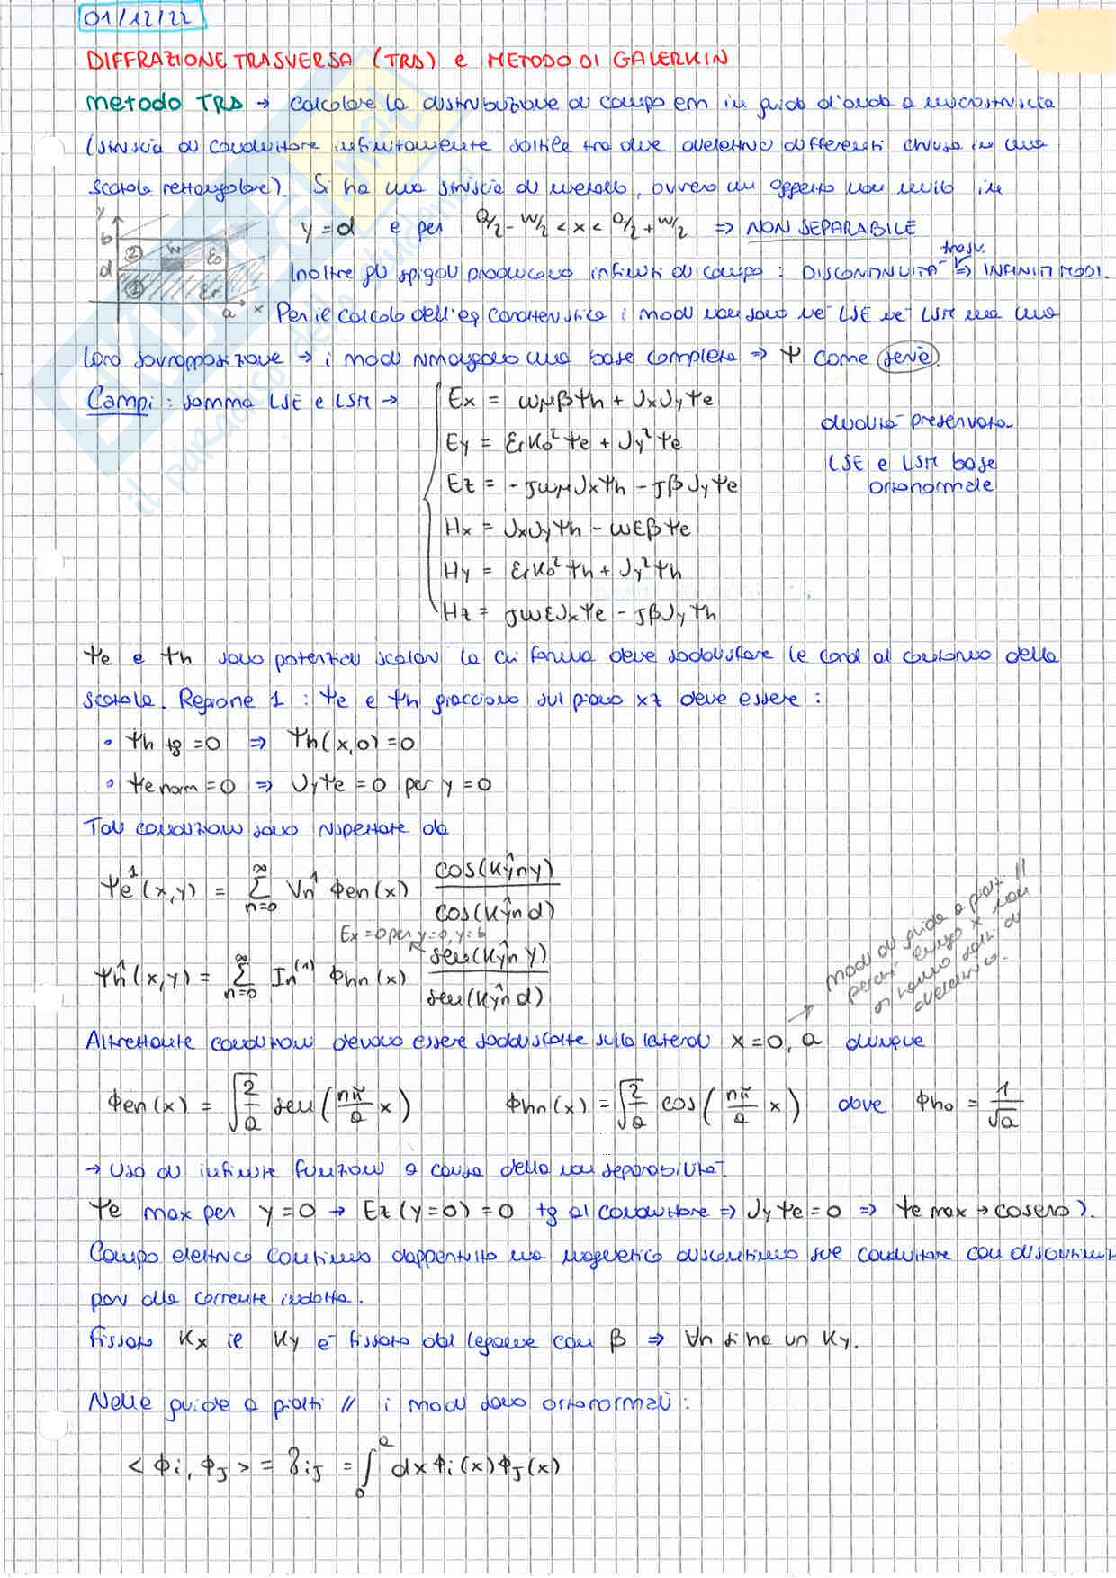 01/12/22
DIFFRAZIONE TRASVERSA (TRD) e METODO DI GALERKIN
metodo TRD → calcolare la distribuzione di campo em in guida d'onda a microstriscia
(striscia di conduttore infinitamente sottile tra due dielettrici differenti chiusa in una
scatola rettangolare). Si ha una striscia di metallo, ovvero un oggetto non unito in
y = d e per a/2 - w/2 < x < a/2 + w/2 ⇒ NON SEPARABILE
y b d 2 1 w ε0 εr a x
Inoltre gli spigoli producono infiniti di campo : DISCONTINUITÀ trasv. ⇒ INFINITI MODI.
Per il calcolo dell'eq caratteristica i modi non sono né LSE né LSM ma una
loro sovrapposizione → i modi rimangono una base completa ⇒ Ψ come serie.
Campi : somma LSE e LSM →
Ex = ωμβΨh + ∂x∂yΨe
Ey = εrK0²Ψe + ∂y²Ψe
Ez = -jωμ∂xΨh - jβ∂yΨe
Hx = ∂x∂yΨh - ωεβΨe
Hy = εrK0²Ψh + ∂y²Ψh
Hz = jωε∂xΨe - jβ∂yΨh
dualità preservata
LSE e LSM base
ortonormale
Ψe e Ψh sono potenziali scalari la cui forma deve soddisfare le cond al contorno della
scatola. Regione 1 : Ψe e Ψh giacciono sul piano xz deve essere :
• Ψh tg = 0 ⇒ Ψh(x,0) = 0
• Ψe norm = 0 ⇒ ∂yΨe = 0 per y = 0
Tali condizioni sono rispettate da
Ψe¹(x,y) = Σ n=0 ∞ Vn¹ Φen(x) cos(Kyn¹ y) / cos(Kyn¹ d)
Ex = 0 per y=0, y=b
Ψh¹(x,y) = Σ n=0 ∞ In⁽¹⁾ Φhn(x) sen(Kyn¹ y) / sen(Kyn¹ d)
modi di guida a piatti //
perché lungo x non
si hanno salti di
dielettrico.
Altrettante condizioni devono essere soddisfatte sulle laterali x = 0, a dunque
Φen(x) = √2/a sen(nπ/a x) Φhn(x) = √2/a cos(nπ/a x) dove Φh0 = 1/√a
→ Uso di infinite funzioni a causa della non separabilità
Ψe max per y = 0 → Ez(y=0) = 0 tg al conduttore ⇒ ∂yΨe = 0 ⇒ Ψe max → coseno).
Campo elettrico continuo dappertutto ma magnetico discontinuo sul conduttore con discontinuit
pari alla corrente indotta.
Fissato Kx il Ky è fissato dal legame con β ⇒ ∀n si ha un Ky.
Nelle guide a piatti // i modi sono ortonormali :
< Φi, ΦJ > = δiJ = ∫ 0 a dx Φi(x) ΦJ(x)